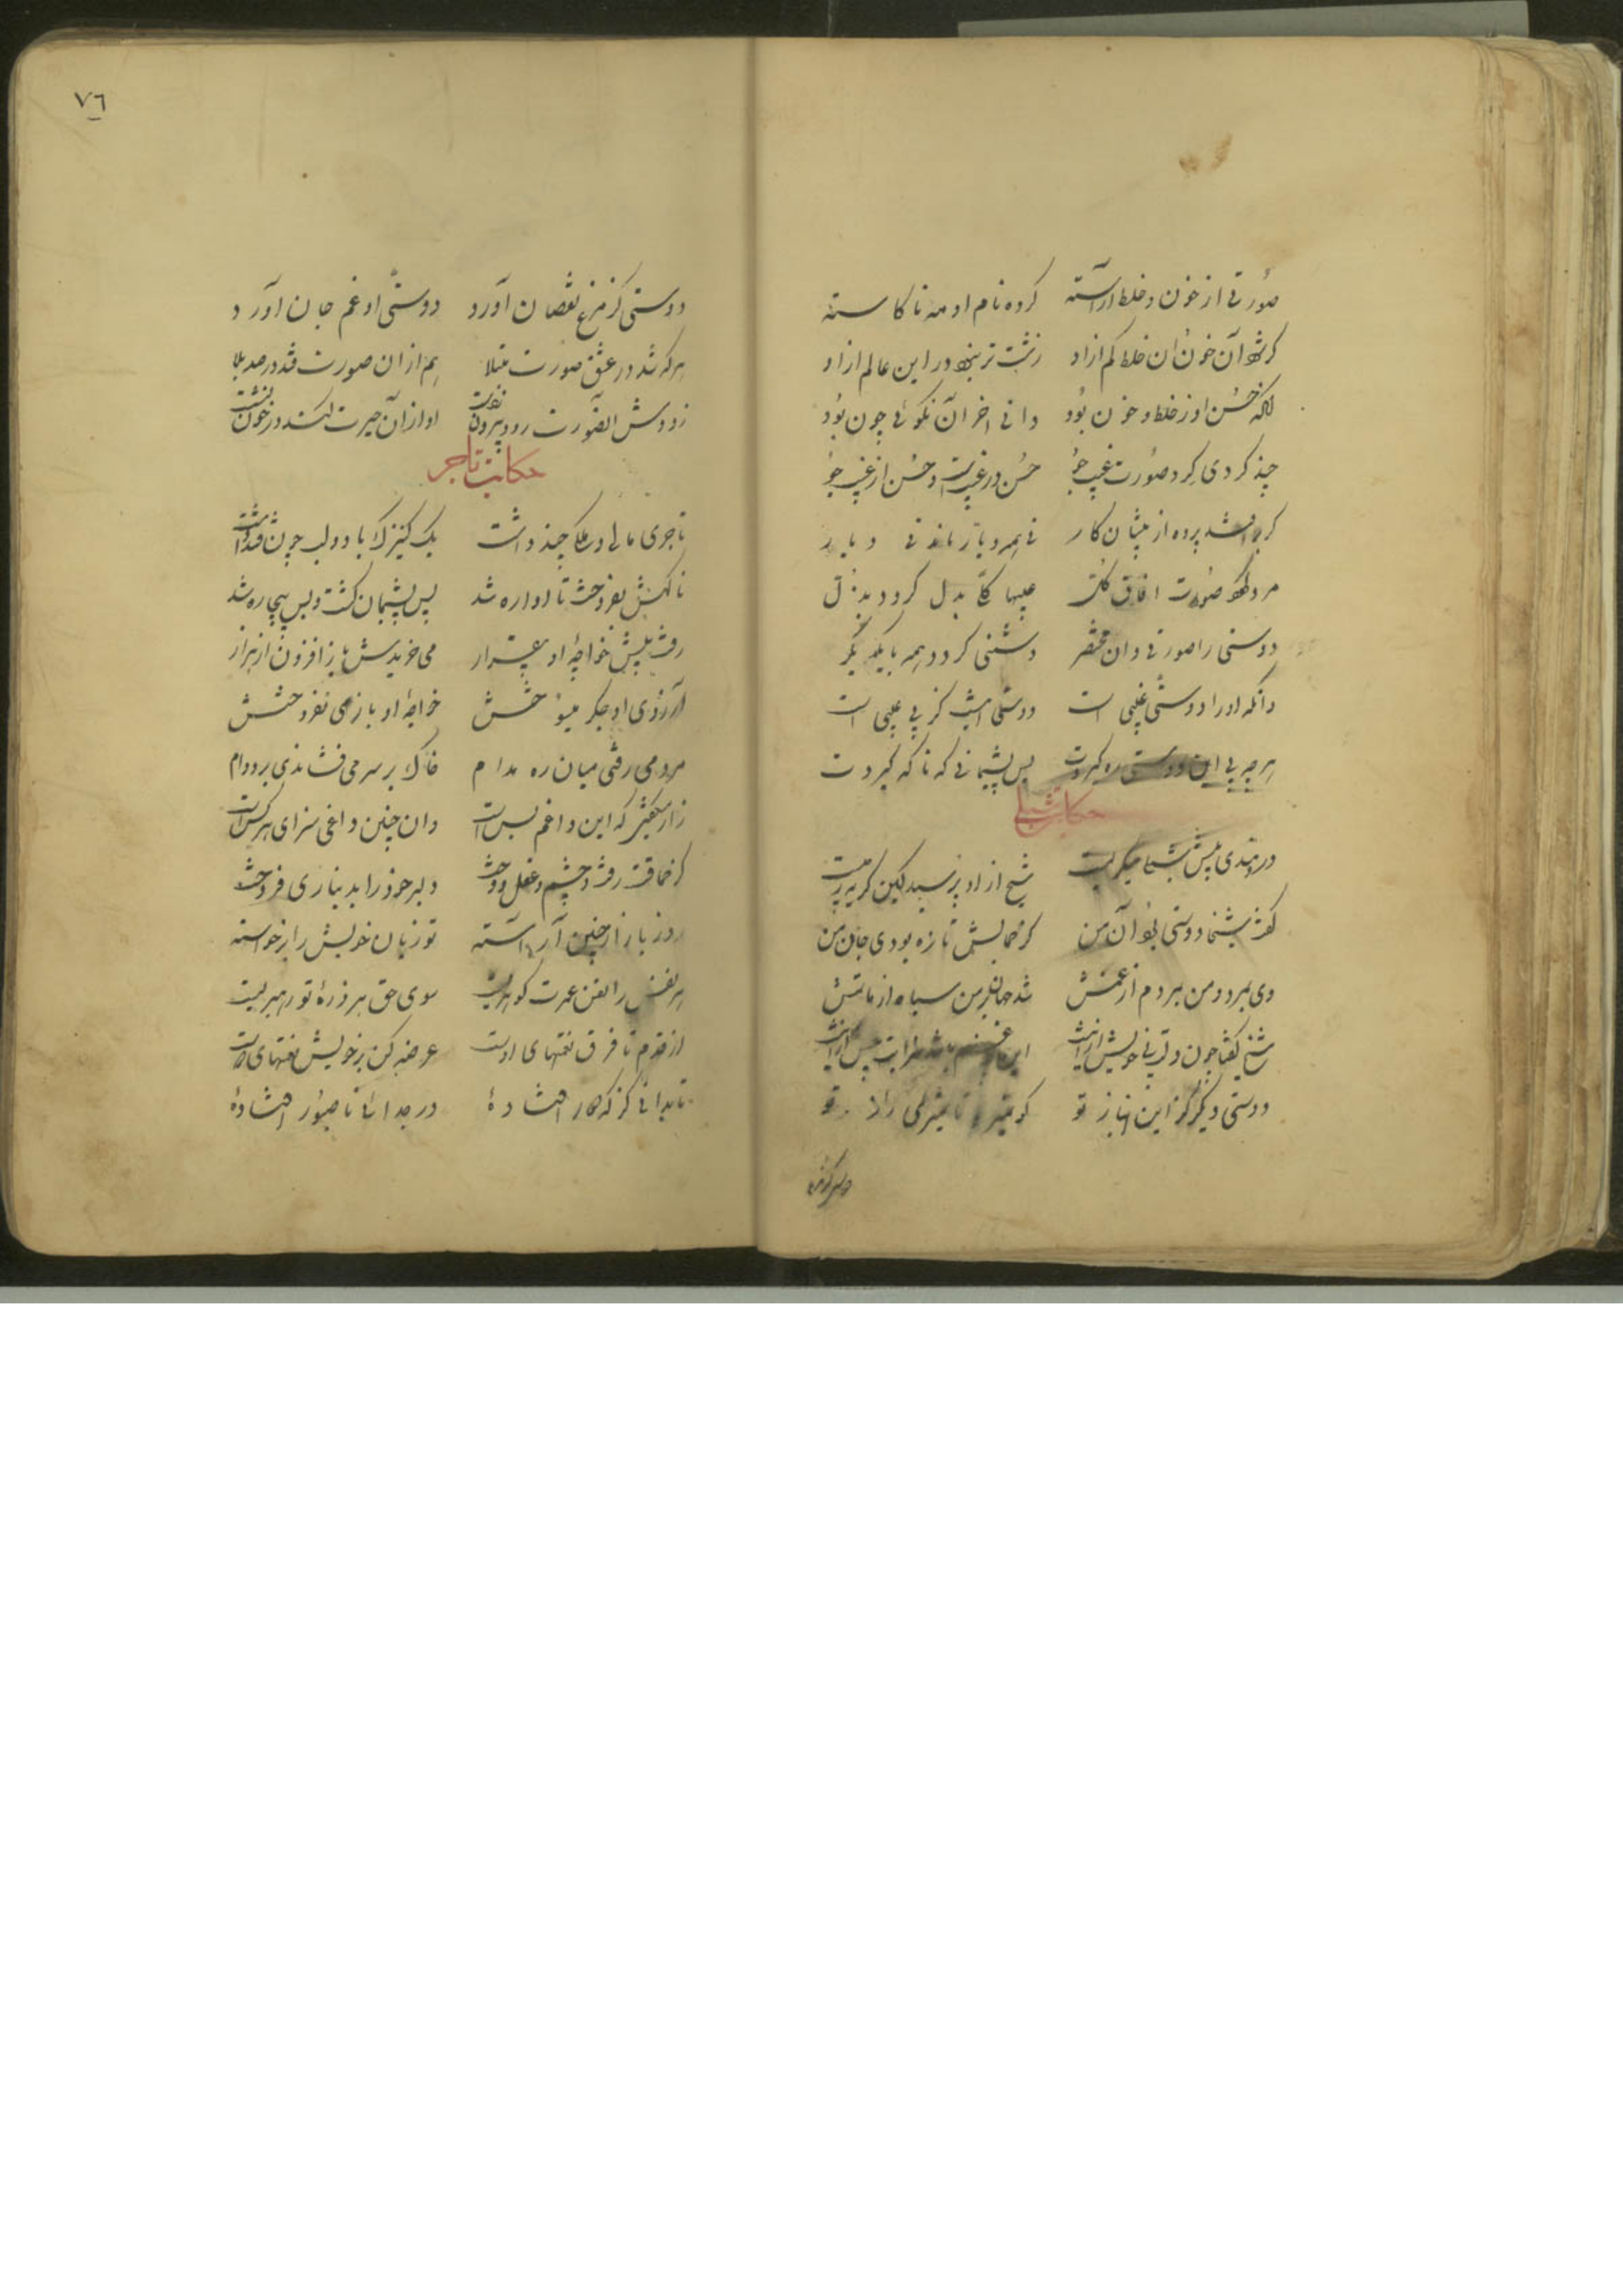 صورتی از خون و خلط آراسته کرده نام او مه ناکاسته
گر شود آن خون و آن خلط کم ازو زشت تر نبود در این عالم ازو
آنکه حسن او ز خلط و خون بود دانی آخر آن نکویی چون بود
چند گردی گرد صورت عیب جو حسن در غیبست حسن از غیب جو
گر بر افتد پرده از پیشان کار نی همه دیار ماند نی دیار
دوستی را صورتی دان مختصر دشمنی گردد همه با یکدگر
وانکه او را دوستی غیبی است دوستی اینست کز بی عیبی است
هرچه بی این دوستی ره گیردت بس پشیمانی که ناگه گیردت
حکایت شبلی
دردمندی پیش شبلی میگریست شیخ از او پرسید کین گریه ز چیست
گفت شیخا دوستی بود آن من کز جمالش تازه بودی جان من
دی بمرد و من بمردم از غمش شد جهان بر من سیاه از ماتمش
شیخ گفتا چون دلت بی خویش ازینست این چه غم باشد سزایت بیش ازینست
دوستی دیگر گزین این بار تو کو نمیرد تا نمیری زار تو
دوستی کز مرگ
٧٦
دوستی کز مرگ نقصان آورد دوستی او غم جان آورد
هر که شد در عشق صورت مبتلا هم از آن صورت فتد در صد بلا
زودش آن صورت رود بیرون ز دست او از آن حیرت کند در خون نشست
حکایت تاجر
تاجری مالی و ملکی چند داشت یک کنیزک با دو لب چون قند داشت
ناگهش بفروخت تا آواره شد بس پشیمان گشت و بس بیچاره شد
رفت پیش خواجهٔ او بیقرار می خریدش باز افزون از هزار
ز آرزوی او جگر میسوختش خواجهٔ او باز می نفروختش
مرد می رفتی میان ره مدام خاک بر سر می فشاندی بر دوام
زار میگفتی که این داغم بس است وان چنین داغی سزای هر کس است
کز حماقت رفت و چشم عقل دوخت دلبر خود را بدیناری فروخت
روز بازاری چنین آراسته تو زیان خویش را برخاسته
هر نفس را نفس عمرت گوهریست سوی حق هر ذرهٔ تو رهبریست
از قدم تا فرق نعمتهای اوست عرضه کن بر خویش نعمتهای دوست
تا بدانی کز که دور افتادهٔ در جدائی نا صبور افتادهٔ